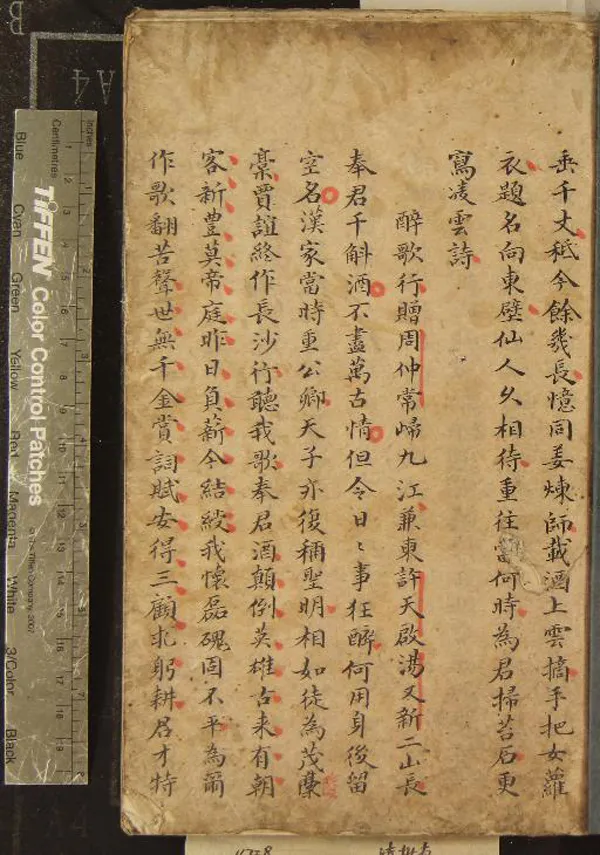 垂千丈秪今餘幾長憶同姜煉師載酒上雲摘手把女蘿
衣題名向東壁仙人久相待重往當何時為君掃苔石更
寫凌雲詩
醉歌行贈周仲常歸九江兼東許天啟湯又新二山長
奉君千斛酒不盡萬古情但令日〻事狂醉何用身後留
空名漢家當時重公卿天子亦復稱聖明相如徒為茂陵
稾賈誼終作長沙行聽我歌奉君酒顛倒英雄古来有朝
客新豊莫帝庭昨日負薪今結綬我懷磊磈固不平為爾
作歌翻苦聲世無千金賞詞賦安得三顧求躬耕君才特
TIFFEN Color Control Patches
© The Tiffen Company, 2007
Inches
Centimetres
Blue
Cyan
Green
Yellow
Red
Magenta
White
3/Color
Black
B
A4
A4